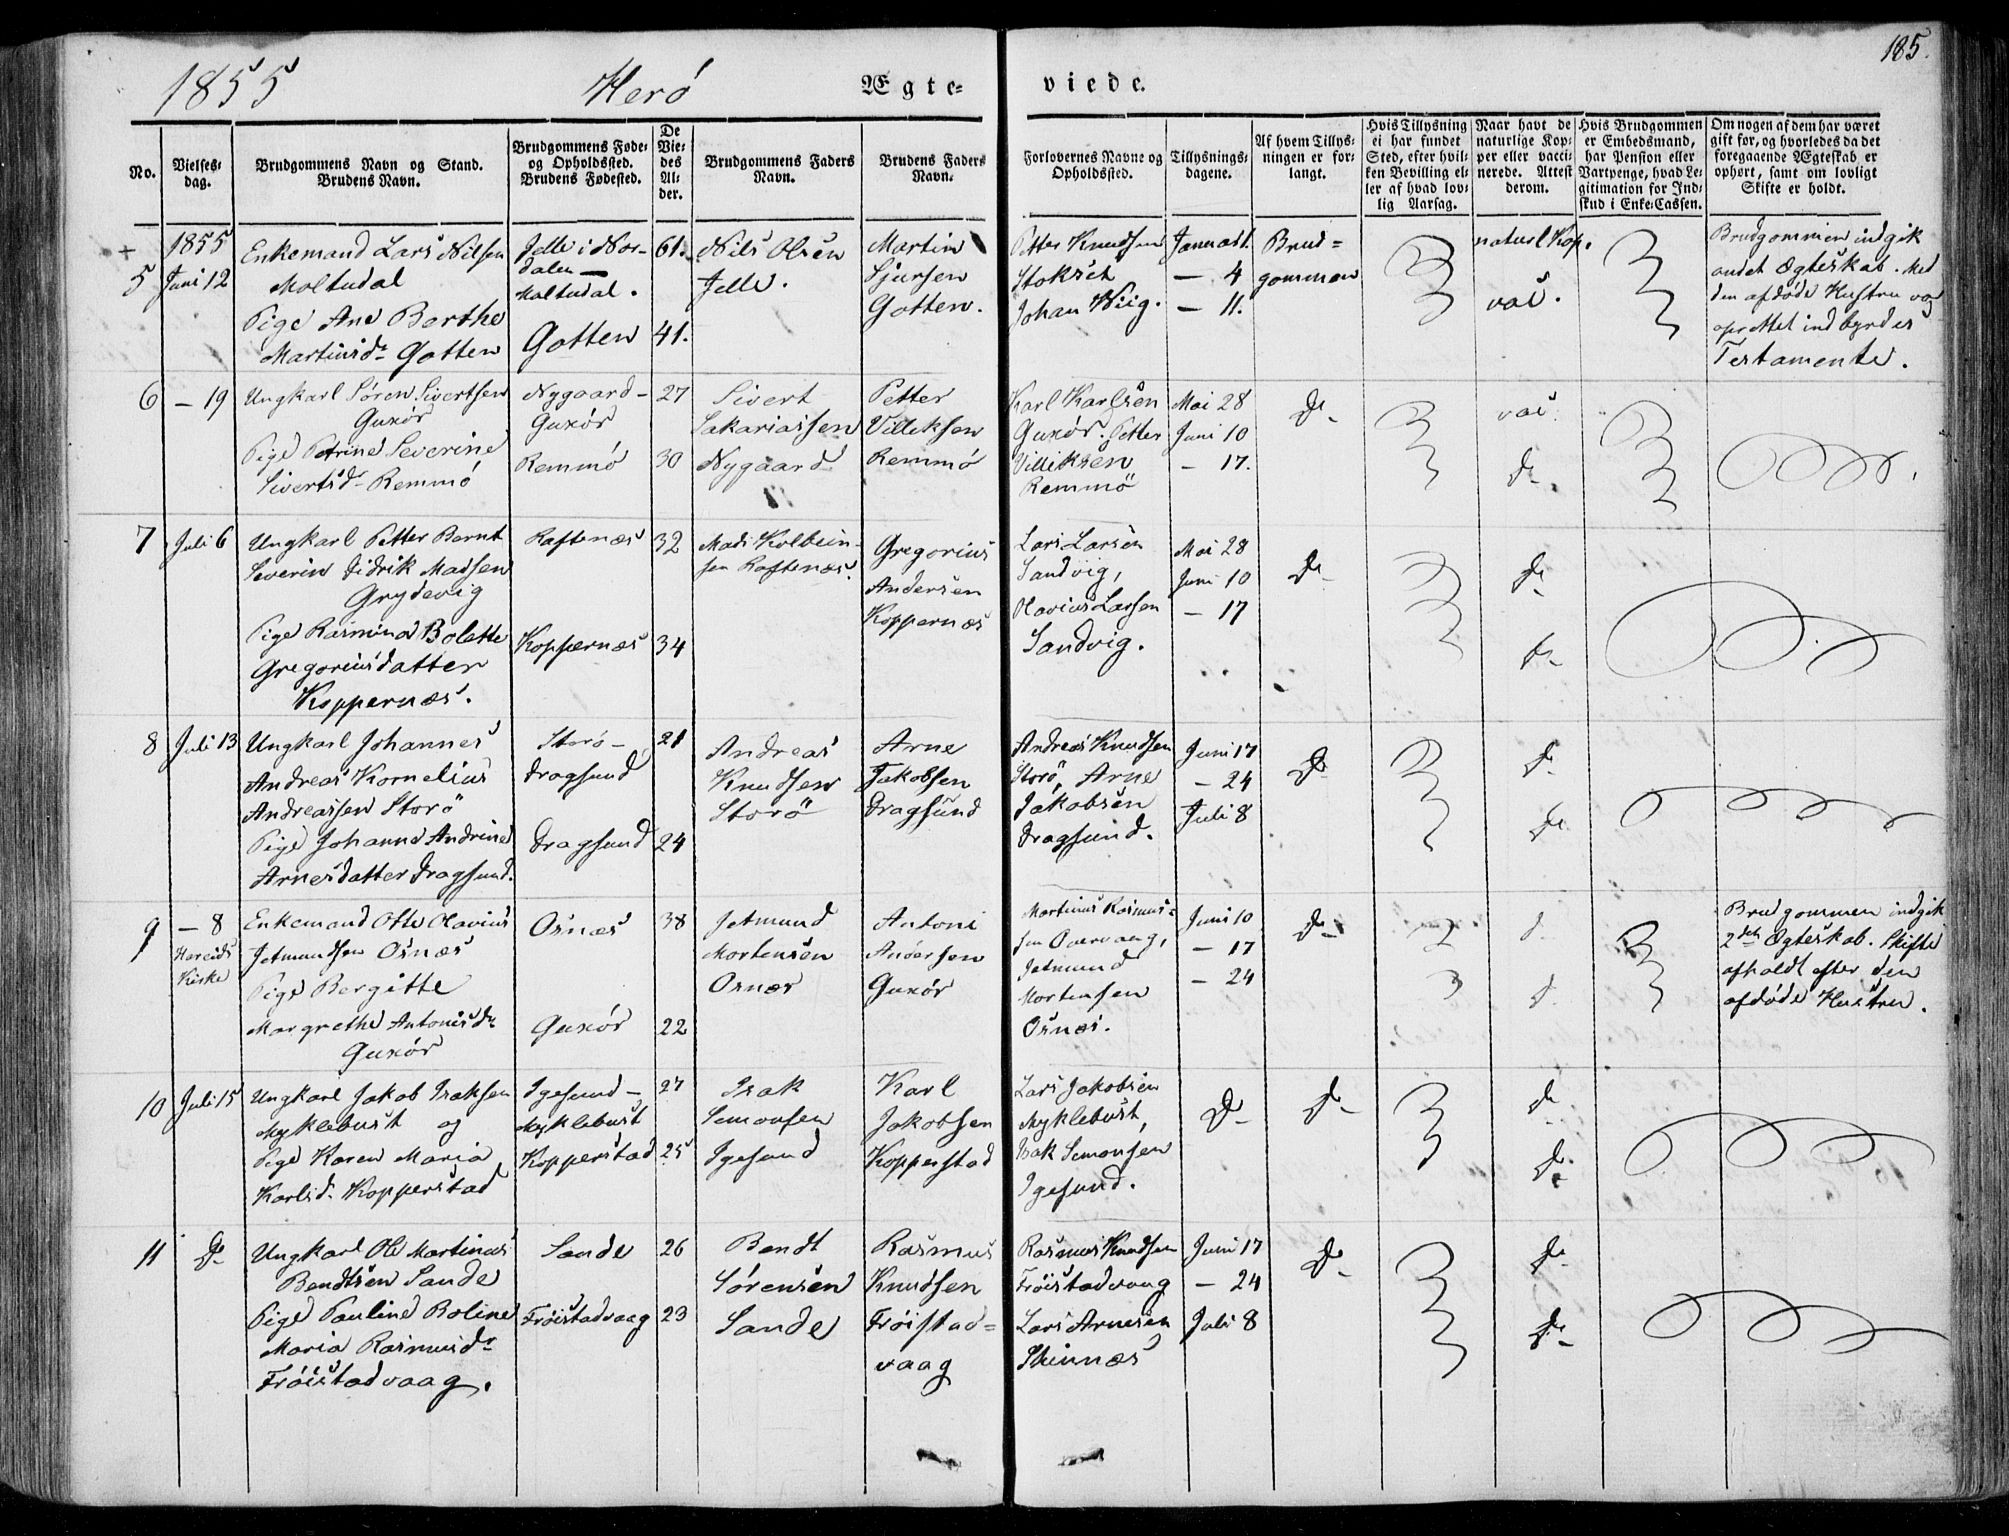 185.
1855 Herö Ægte- viede.
No.
Vielses-
dag.
Brudgommens Navn og Stand.
Brudens Navn.
Brudgommens Føde-
og Opholdssted.
Brudens Fødested.
De
Vie-
des
Al-
der.
Brudgommens Faders
Navn.
Brudens Faders
Navn.
Forlovernes Navne og
Opholdssted.
Tillysnings-
dagene.
Af hvem Tillys-
ningen er for-
langt.
Hvis Tillysning
ei har fundet
Sted, efter hvil-
ken Bevilling el-
ler af hvad lov-
lig Aarsag.
Naar havt de
naturlige Kop-
per eller vacci-
nerede. Attest
derom.
Hvis Brudgommen
er Embedsmand,
har Pension eller
Vartpenge, hvad Le-
gitimation for Ind-
skud i Enke-Cassen.
Om nogen af dem har været
gift før, og hvorledes da det
foregaaende Ægteskab er
ophørt, samt om lovligt
Skifte er holdt.
+
5
1855
Juni 12
Enkemand Lars Nilsen
Moltudal
Pige Ane Berthe
Martinsdr Gotten
Jelle i Nor-
dalen —
Moltudal.
Gotten
61.
41.
Nils Olsen
Jelle.
Martin
Sjursen
Gotten.
Petter Knudsen
Stokset
Johan Wiig.
— 4
— 11.
Brud=
gommen
naturl Kop.
vac.
Brudgommen indgik
andet Ægteskab. Med
den afdøde Hustru var
oprettet indbyrdes
Testamente.
6
— 19
Ungkarl Sören Sivertsen
Guxör
Pige Petrine Severine
Sivertsd. Remmö
Nygaard-
Guxör
Remmö
27
30
Sivert
Sakariassen
Nygaard
Petter
Villiksen
Remmö
Karl Karlsen
Guxör. Petter
Villiksen
Remmö
Mai 28
Juni 10
— 17.
Do
vac.
Do
7
Juli 6
Ungkarl Petter Bernt
Severin Didrik Madsen
Grydevig
Pige Rasmine Bolette
Gregoriusdatter
Koppernæs.
Raftenæs
Koppernæs
32
34
Mads Kolbein-
sen Raftenæs.
Gregorius
Andersen
Koppernæs
Lars Larsen
Sandvig,
Olavius Larsen
Sandvig.
Mai 28
Juni 10
— 17
Do
Do
Do
8
Juli 13
Ungkarl Johannes
Andreas Kornelius
Andreassen Storö
Pige Johanne Andrine
Arnesdatter Dragsund.
Storö-
Dragsund
Dragsund
21
24
Andreas
Knudsen
Storö
Arne
Jakobsen
Dragsund
Andreas Knudsen
Storö, Arne
Jakobsen
Dragsund.
Juni 17
— 24
Juli 8
Do
Do
Do
9
— 8
Hareids
Kirke
Enkemand Otte Olavius
Jetmundsen Osnæs
Pige Bergitte
Margrethe Antonisdr
Guxör
Osnæs
Guxör
38
22
Jetmund
Mortensen
Osnæs
Antoni
Andersen
Guxör
Martinus Rasmus-
sen Overvaag,
Jetmund
Mortensen
Osnæs.
Juni 10
— 17
— 24
Do
Do
Do
Brudgommen indgik
2det Ægteskab. Skifte
afholdt efter den
afdøde Hustru.
10
Juli 15
Ungkarl Jakob Isaksen
Myklebust og
Pige Karen Maria
Karlsd. Kopperstad
Igesund-
Myklebust
Kopperstad
27
25
Isak
Simonsen
Igesund
Karl
Jakobsen
Kopperstad
Lars Jakobsen
Myklebust,
Isak Simonsen
Igesund.
Do
Do
Do
Do
11
Do
Ungkarl Ole Martinus
Bendtsen Sande
Pige Pauline Boline
Maria Rasmusdr
Fröistadvaag.
Sande
Fröistadvaag
26
23
Bendt
Sörensen
Sande
Rasmus
Knudsen
Fröistad=
vaag
Rasmus Knudsen
Fröistadvaag
Lars Arnesen
Skinnæs
Juni 17
— 24
Juli 8
Do
Do
Do